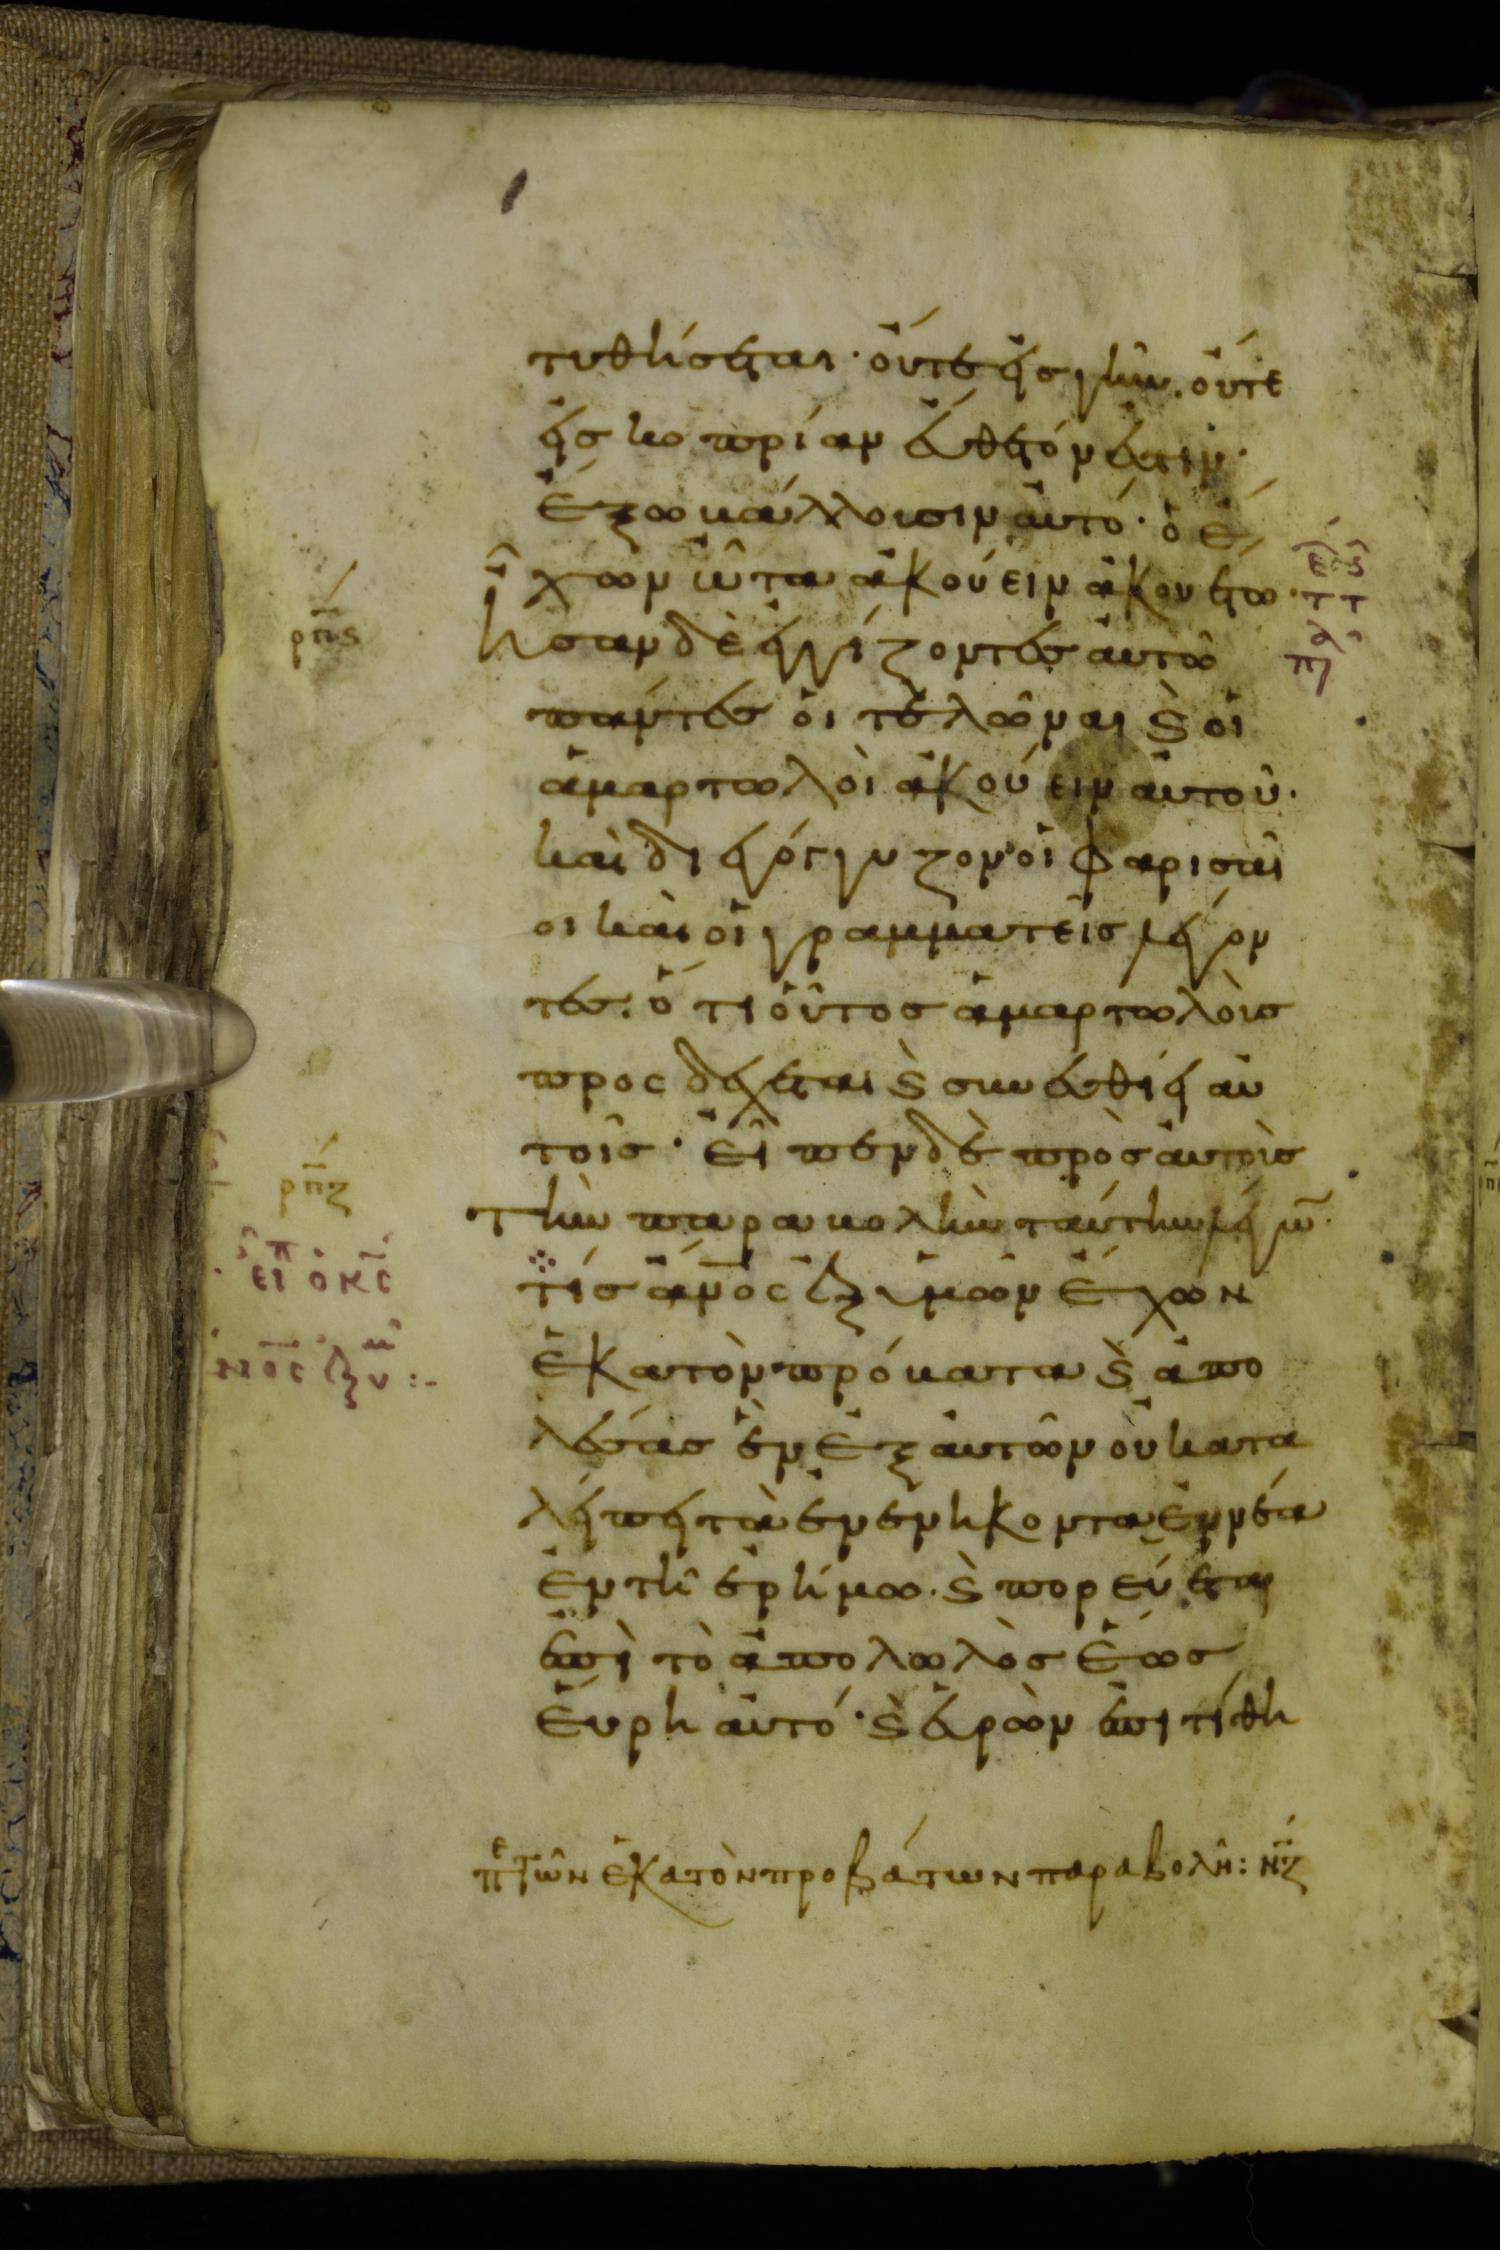 τυθήσεται· οὔτε εἰς γῆν. οὔτε
εἰς κοπρίαν εὔθετόν ἐστιν·
ἔξω βάλλουσιν αὐτό· ὁ ἔ
χων ὦτα ἀκούειν ἀκουέτω·
ρπς
Ἦσαν δὲ ἐγγίζοντες αὐτῶ
πάντες οἱ τελῶναι ϗ οἱ
ἁμαρτωλοὶ ἀκούειν αὐτοῦ·
καὶ διεγόγγυζον οἱ φαρισαῖ
οι καὶ οἱ γραμματεῖς λέγον
τες· ὅτι οὗτος ἁμαρτωλοὺς
προσδέχεται ϗ συνεσθίει αὐ
τοῖς· εἶπεν δὲ πρὸς αὐτοὺς
ρπζ
τὴν παραβολὴν ταύτην λέγω̅·
εἶπ ὁ κς
τίς ἄνος ἐξ ὑμῶν ἔχων
νος ἐξ υμ :-
ἑκατὸν πρόβατα ϗ ἀπο
λέσας ἓν ἐξ αὐτῶν οὐ κατα
λείπει τὰ ἐνενήκοντα ἐννέα
ἐν τῆ ἐρήμω· ϗ πορεύεται
ἐπὶ τὸ ἀπολωλὸς ἕως
εὕρη αὐτό· ϗ εὑρὼν ἐπιτίθη
πε τῶν ἑκατὸν προβάτων παραβολῆ: νζ